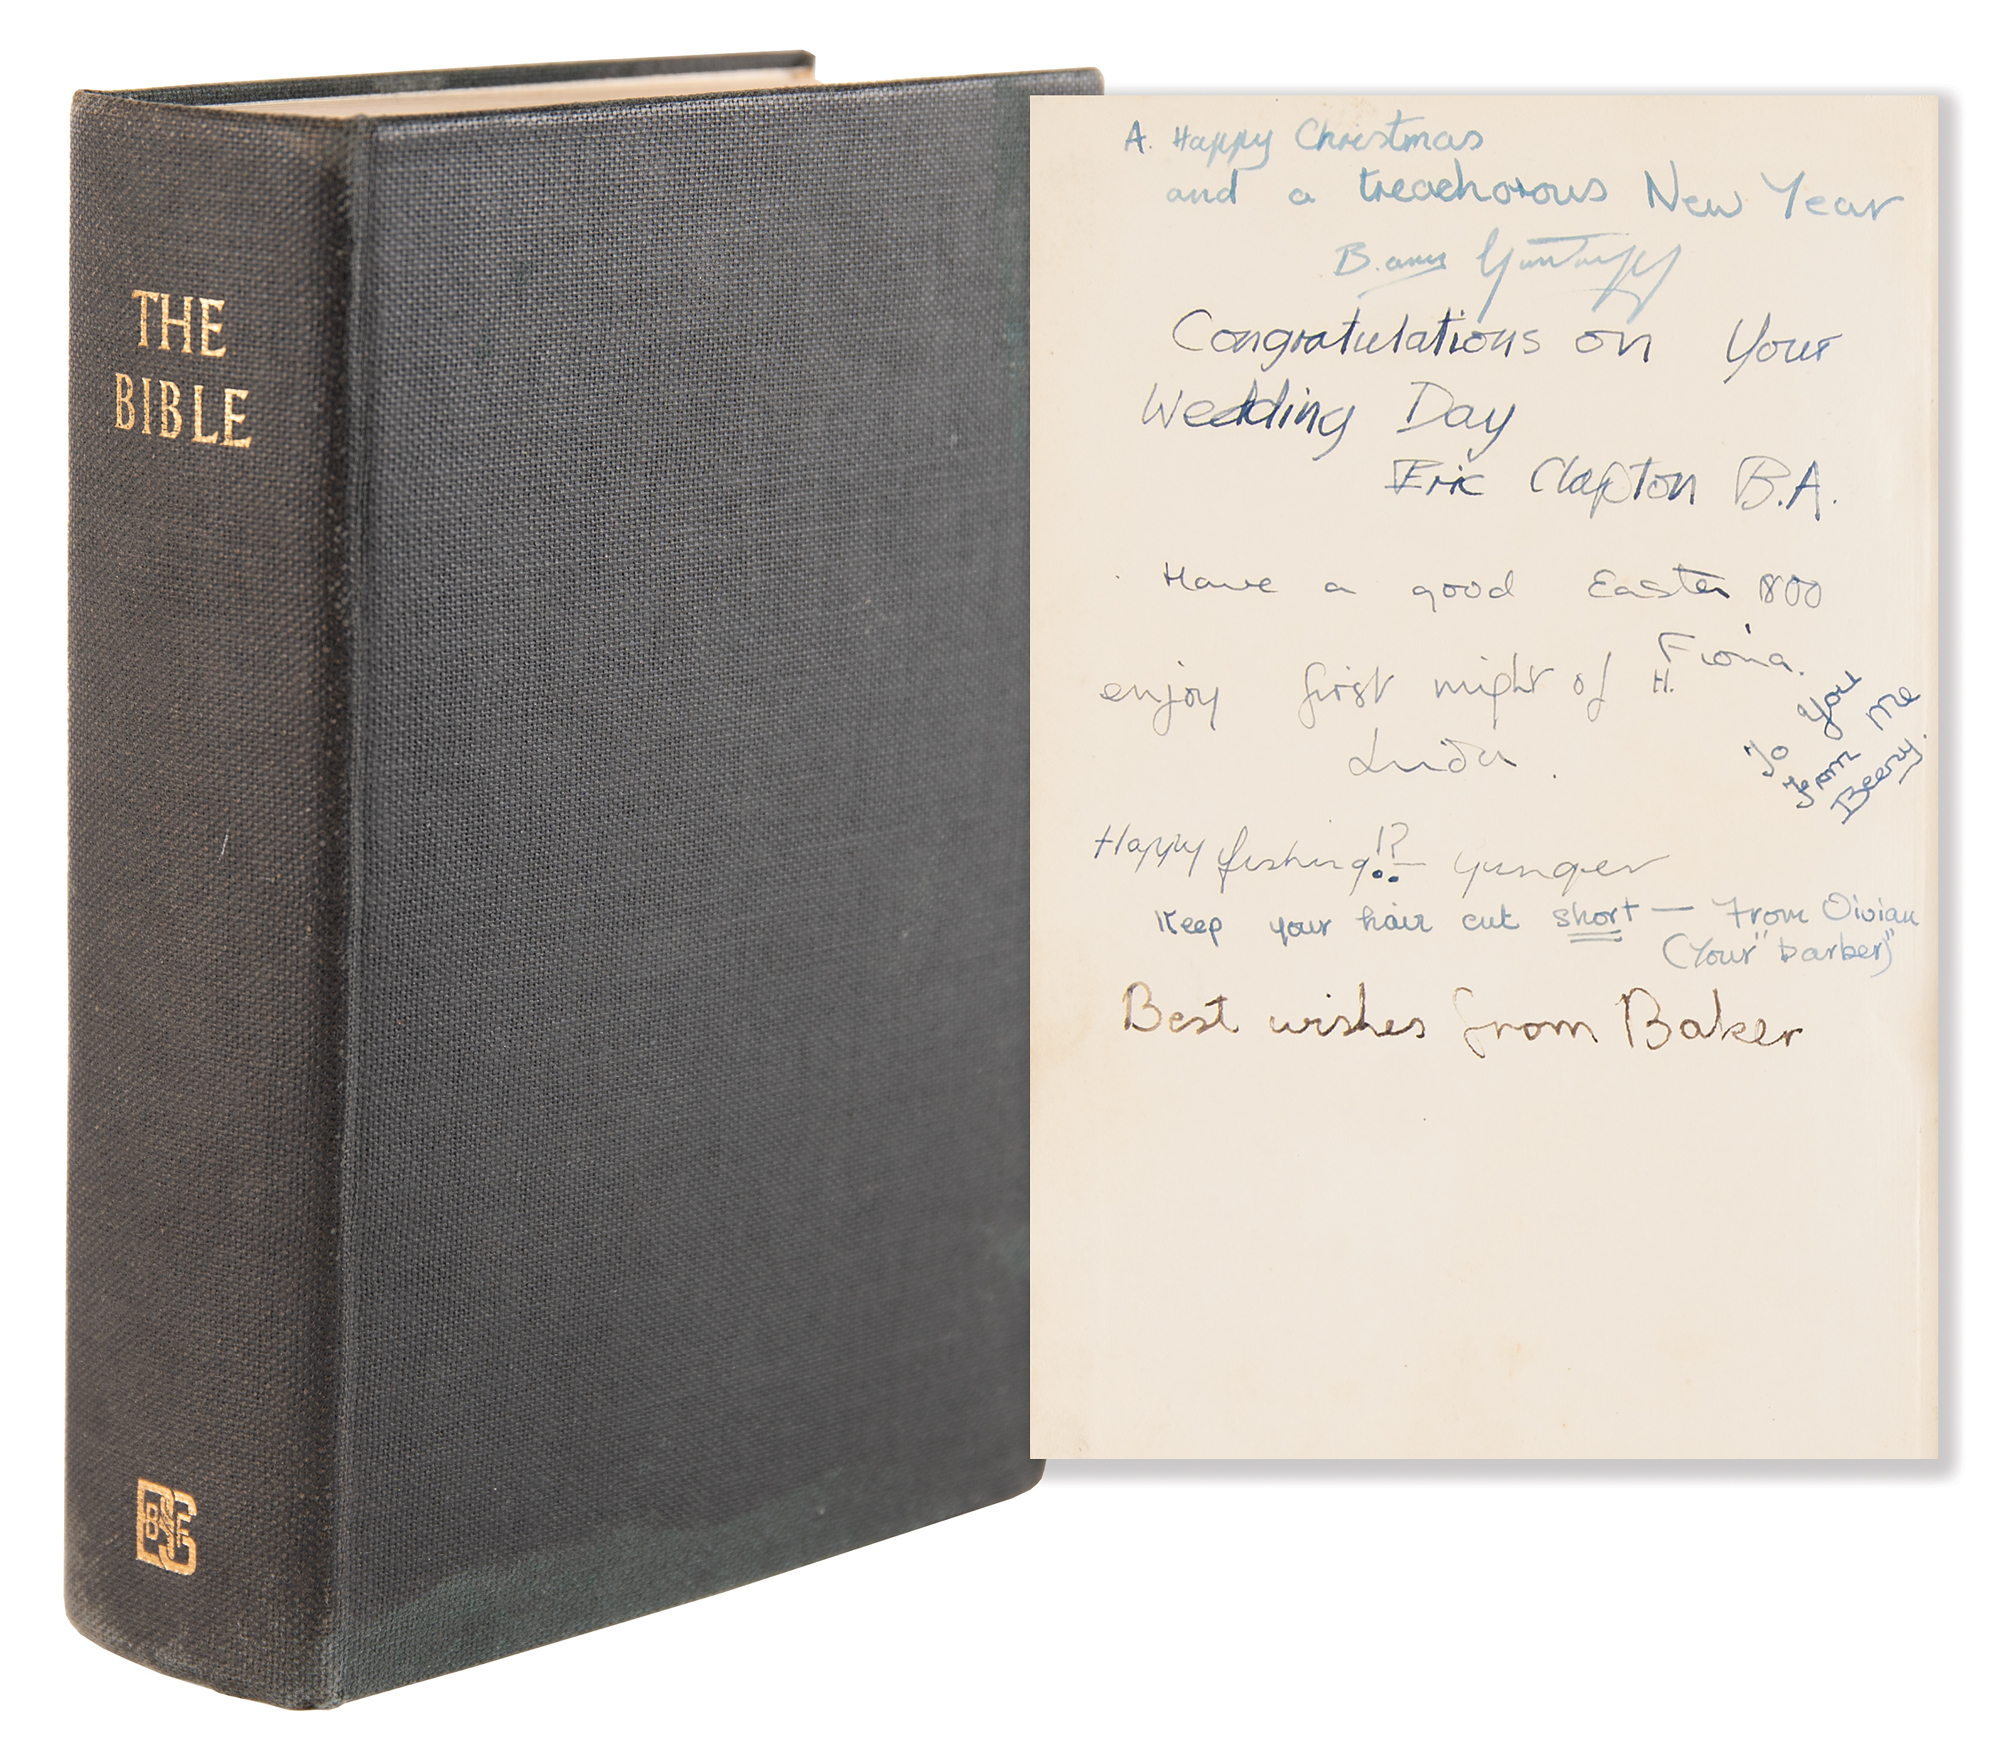 THE
BIBLE
BSFB
A. Happy Christmas
and a treachorous New Year
Congratulations on Your
Wedding Day
Eric Clapton B.A.
Have a good Easter 1800
Fiona.
enjoy first night of H.
Linda.
To You
from me
Beeny.
Happy fishing!? Yunger
Keep your hair cut short — From Oivian
(Your "barber)"
Best wishes from Baker